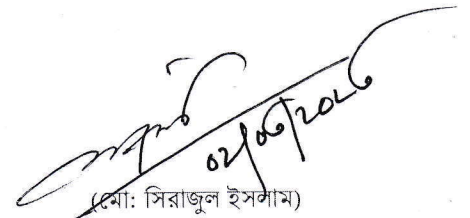 ০২/০৩/২০২৬
(মো: সিরাজুল ইসলাম)